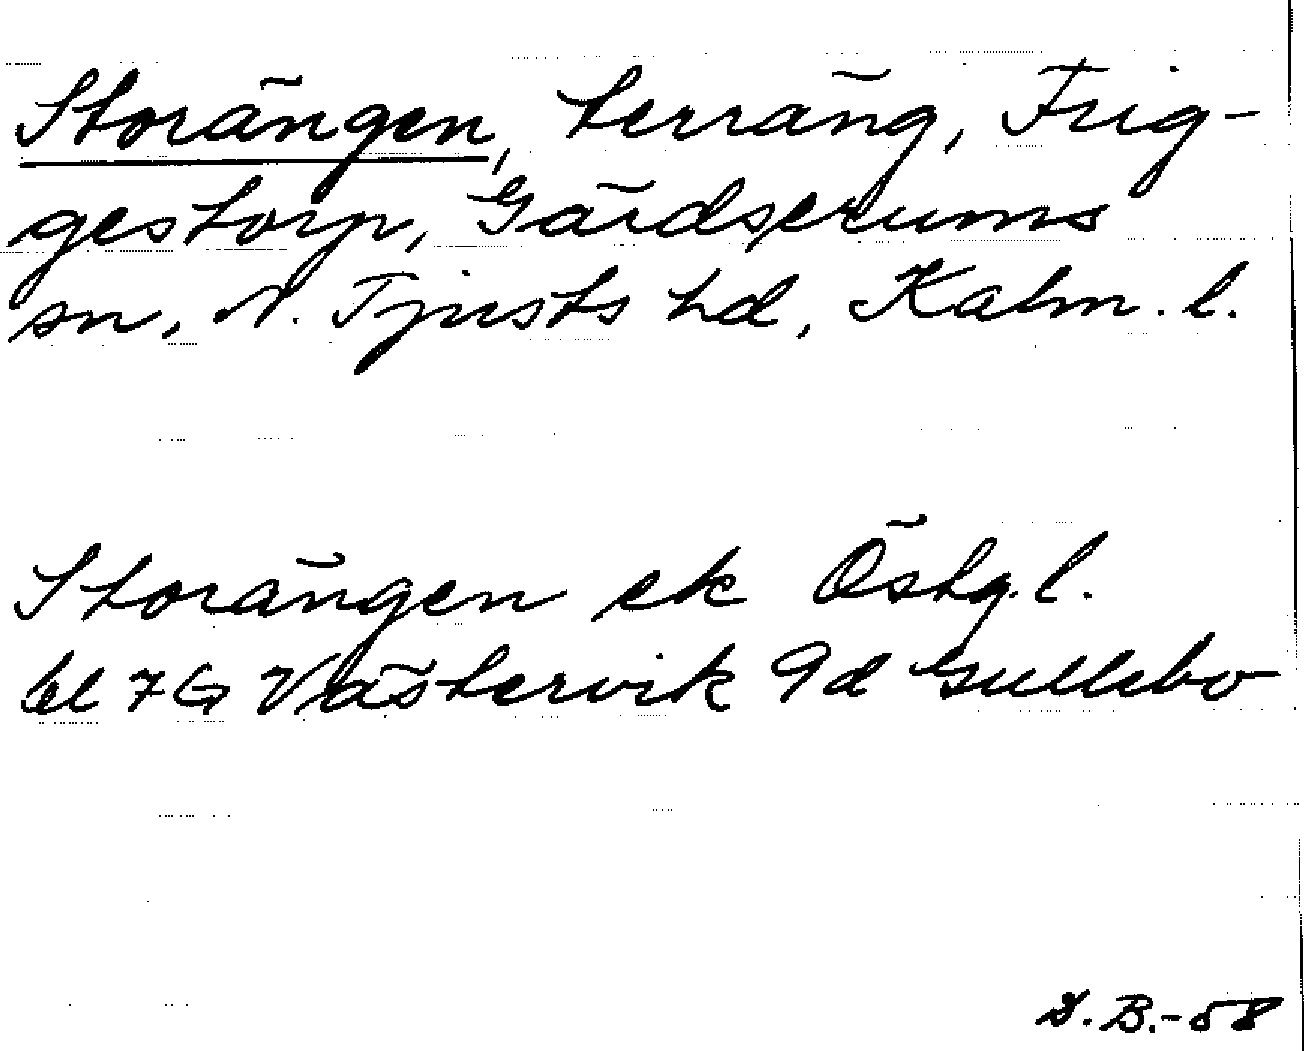 Storängen, terräng, Frig-
gestorp, Gärdserums
sn, N. Tjusts hd, Kalm. l.
Storängen ek Östg. l.
bl 7G Västervik 9d Gullebo
S.B.-58